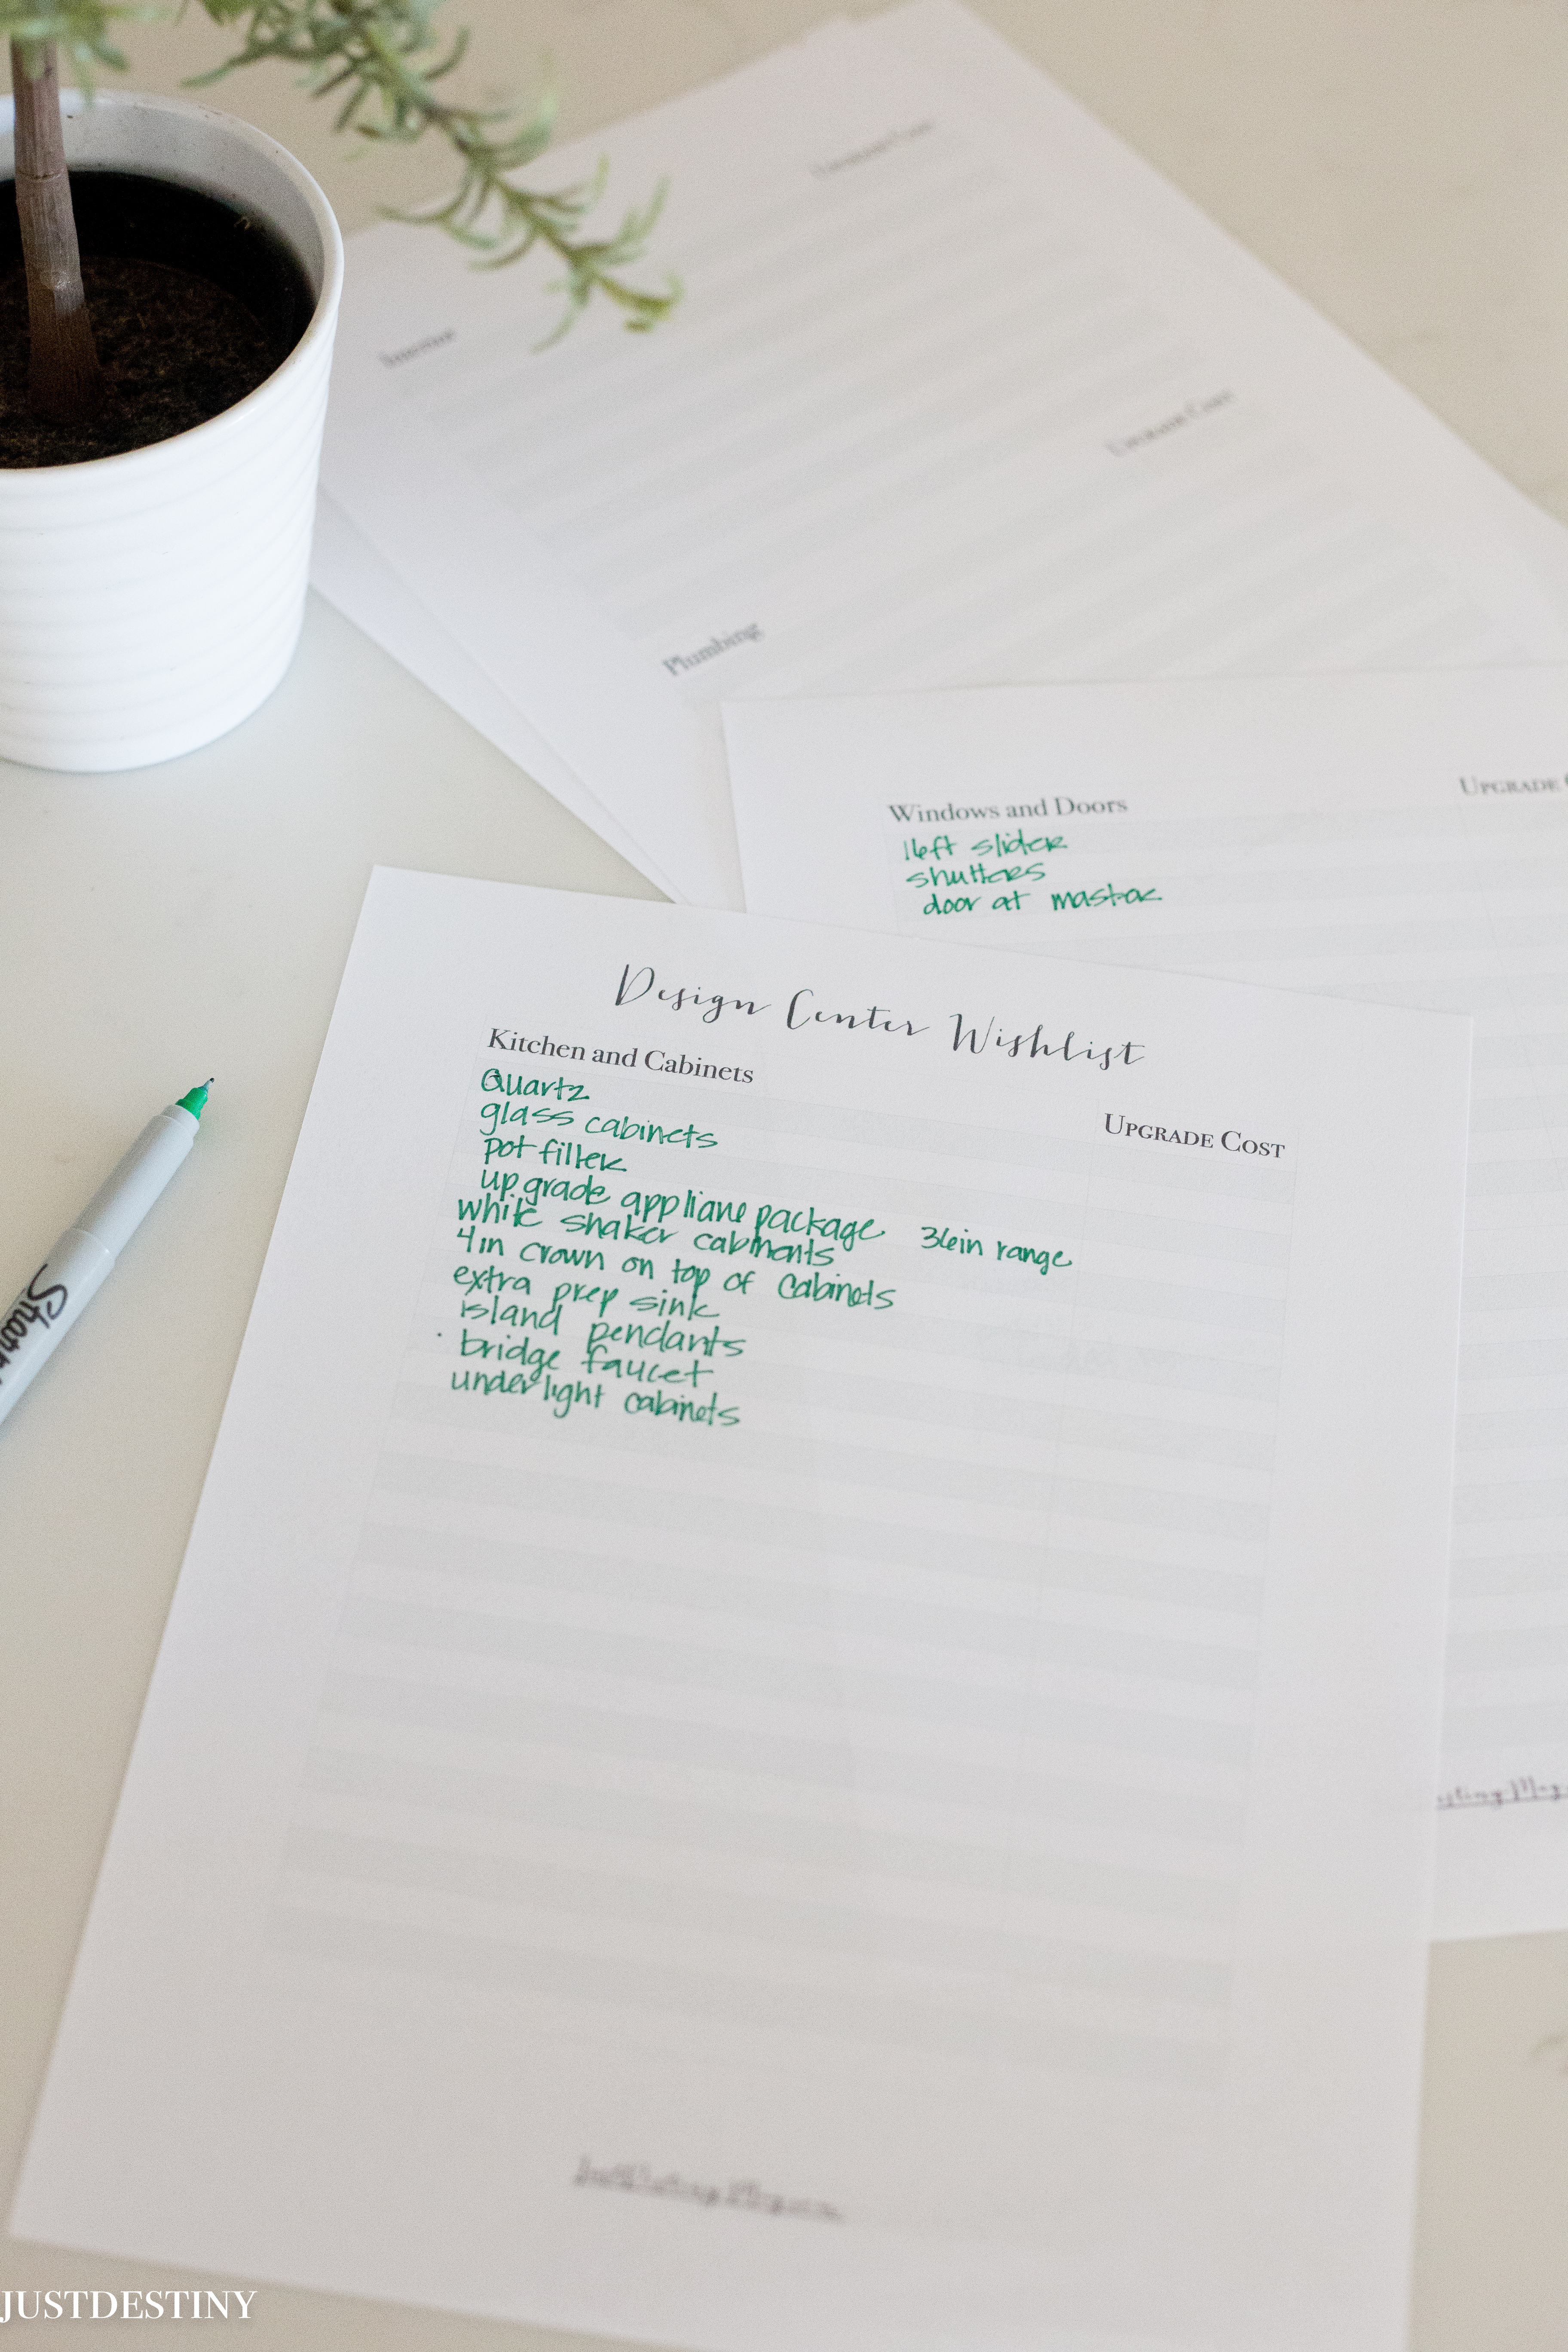 Upgrade Cost
Interior
Upgrade Cost
Plumbing
Windows and Doors
Upgrade
16ft slider
shutters
door at master
Design Center Wishlist
Kitchen and Cabinets
Upgrade Cost
Quartz
glass cabinets
pot filler
upgrade appliane package 36in range
white shaker cabinents
4in crown on top of cabinets
extra prep sink
island pendants
bridge faucet
underlight cabinets
JUSTDESTINY